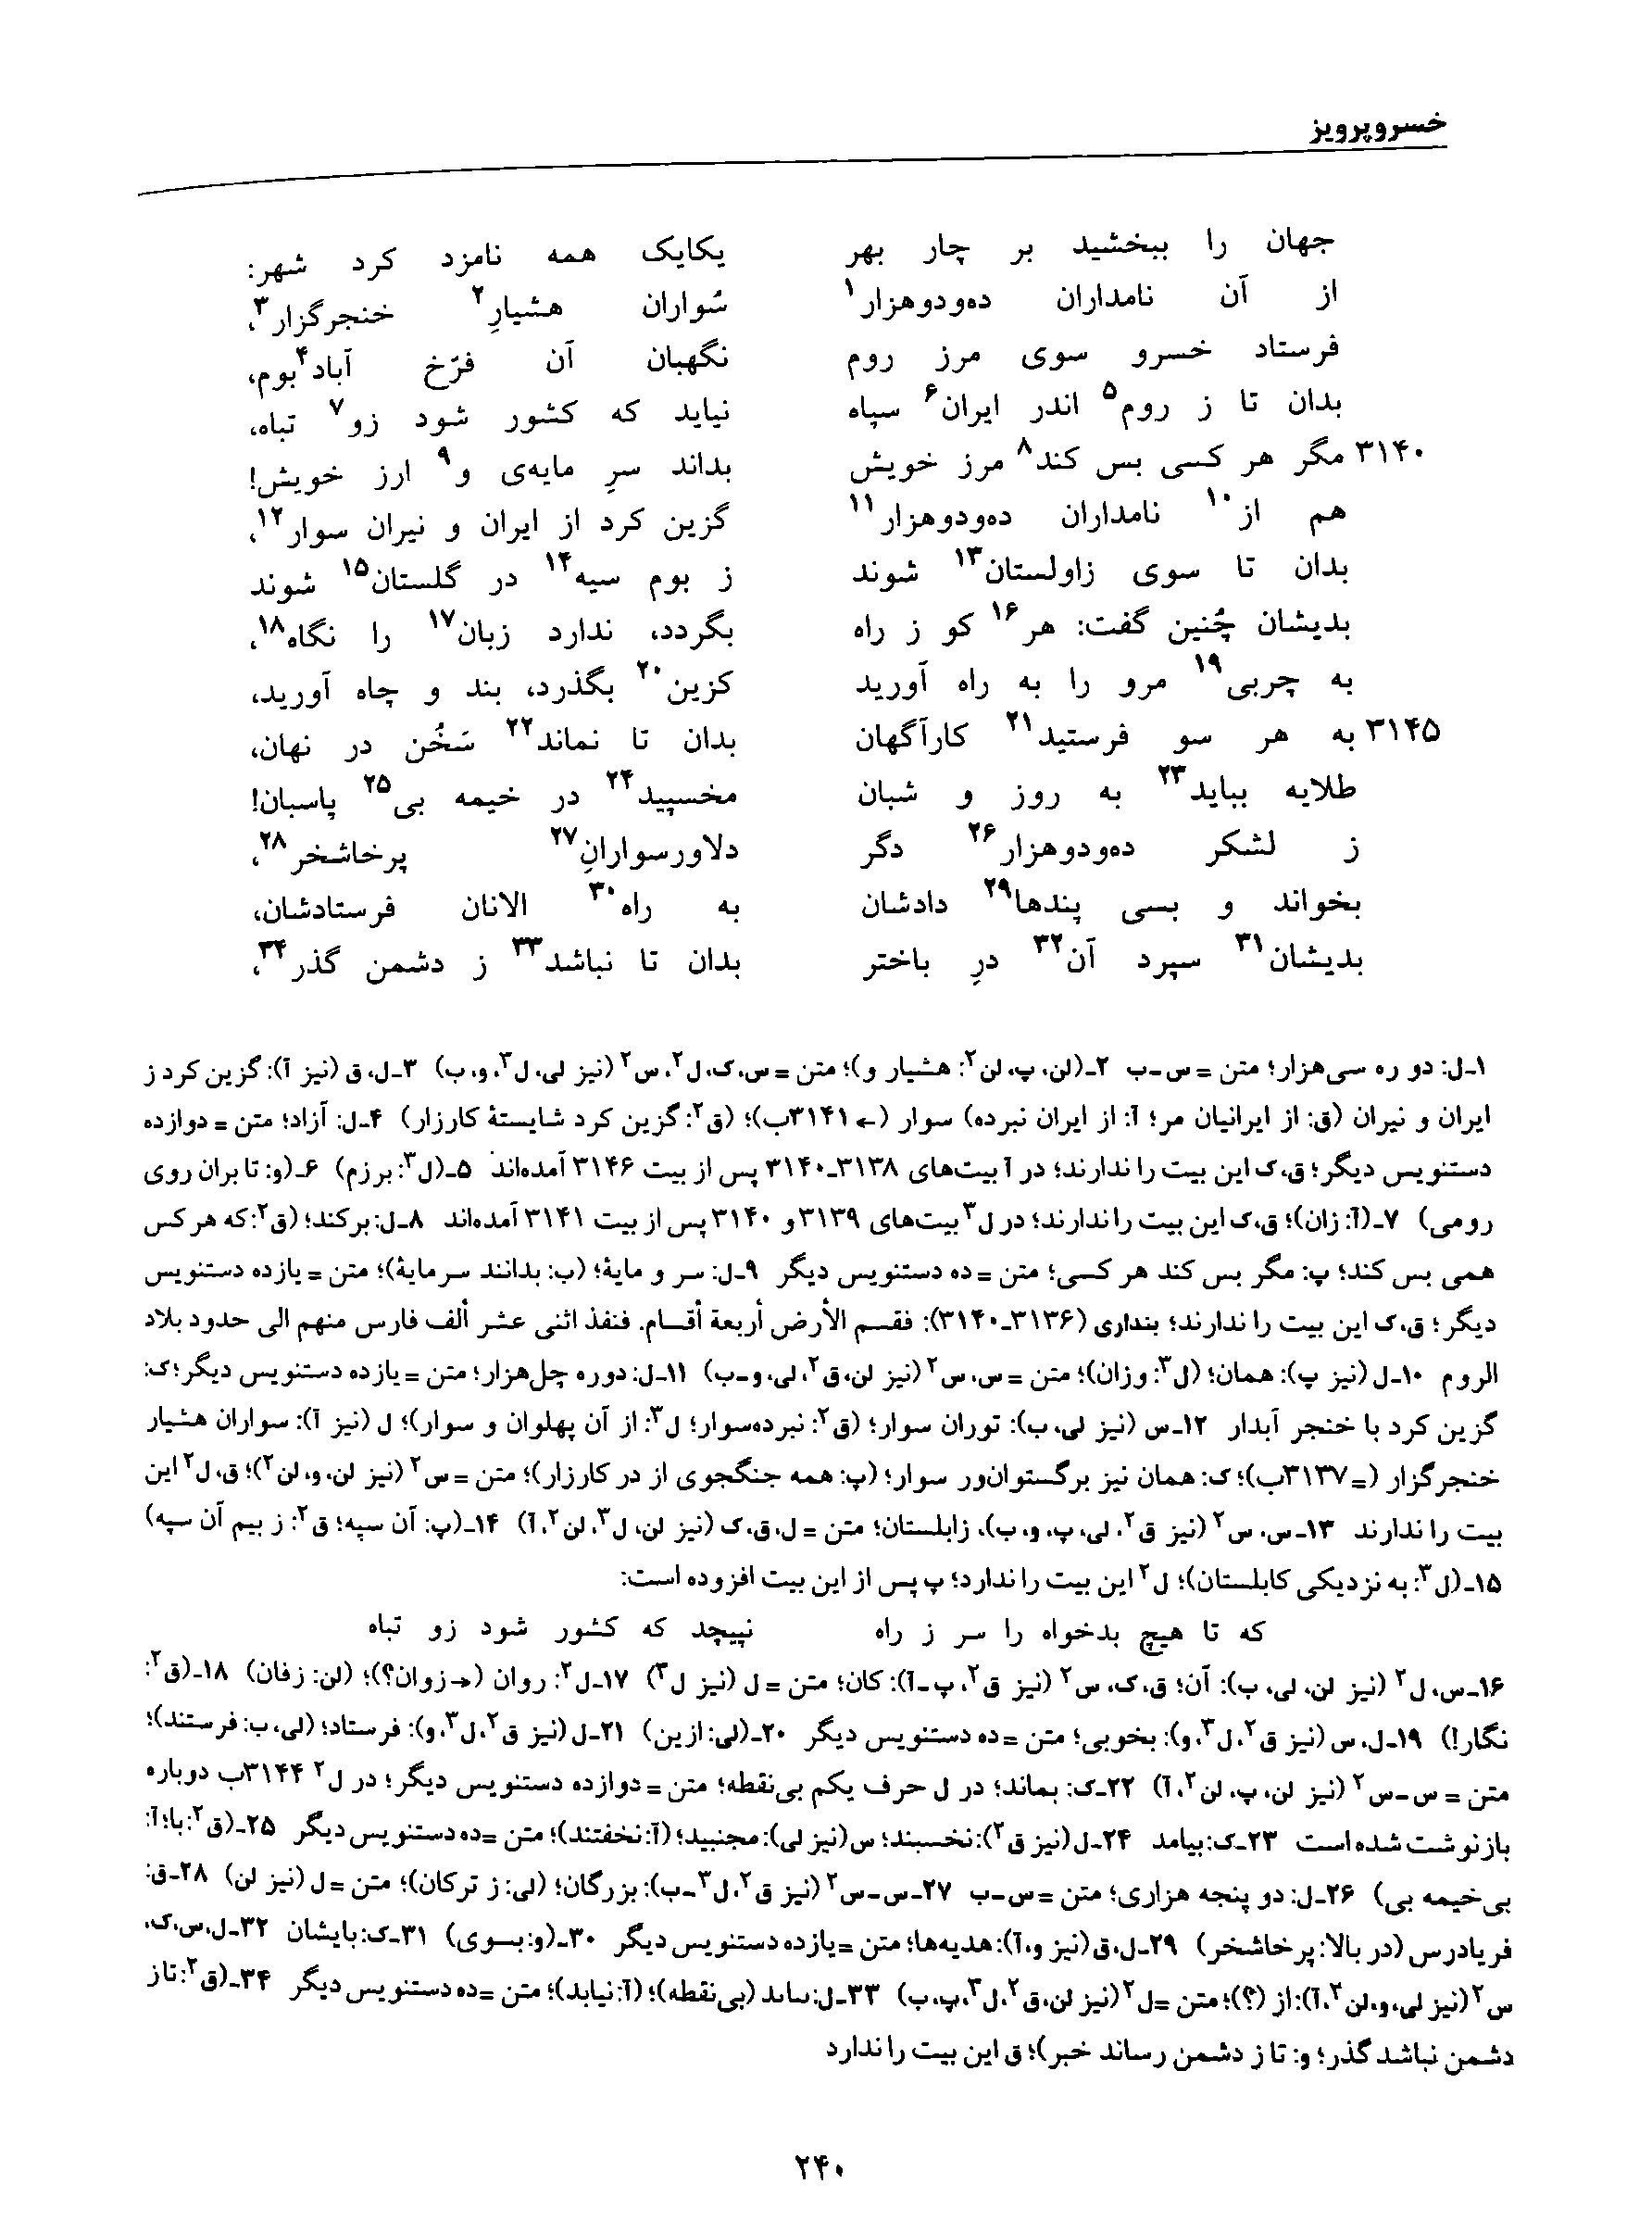 خسروپرویز
جهان را ببخشید بر چار بهر یکایک همه نامزد کرد شهر:
از آن نامداران ده‌ودوهزار۱ سُواران هشیارِ۲ خنجرگزار۳،
فرستاد خسرو سوی مرز روم نگهبان آن فرّخ آباد۴بوم،
بدان تا ز روم۵ اندر ایران۶ سپاه نیاید که کشور شود زو۷ تباه،
۳۱۴۰ مگر هر کسی بس کند۸ مرز خویش بداند سرِ مایه‌ی و۹ ارز خویش!
هم از۱۰ نامداران ده‌ودوهزار۱۱ گزین کرد از ایران و نیران سوار۱۲،
بدان تا سوی زاولستان۱۳ شوند ز بوم سیه۱۴ در گلستان۱۵ شوند
بدیشان چُنین گفت: هر۱۶ کو ز راه بگردد، ندارد زبان۱۷ را نگاه۱۸،
به چربی۱۹ مرو را به راه آورید کزین۲۰ بگذرد، بند و چاه آورید،
۳۱۴۵ به هر سو فرستید۲۱ کارآگهان بدان تا نماند۲۲ سَخُن در نهان،
طلایه بباید۲۳ به روز و شبان مخسپید۲۴ در خیمه بی۲۵ پاسبان!
ز لشکر ده‌ودوهزار۲۶ دگر دلاورسوارانِ۲۷ پرخاشخر۲۸،
بخواند و بسی پندها۲۹ دادشان به راه۳۰ الانان فرستادشان،
بدیشان۳۱ سپرد آن۳۲ درِ باختر بدان تا نباشد۳۳ ز دشمن گذر۳۴،
۱ـ‌ل: دو ره سی‌هزار؛ متن = س‌ـ‌ب ۲ـ(لن، پ، لن۲: هشیار و)؛ متن = س، ک، ل۲، س۲ (نیز لی، ل۳، و، ب) ۳ـ‌ل، ق (نیز آ): گزین کرد ز
ایران و نیران (ق: از ایرانیان مر؛ آ: از ایران نبرده) سوار (← ۳۱۴۱ب)؛ (ق۲: گزین کرد شایستهٔ کارزار) ۴ـ‌ل: آزاد؛ متن = دوازده
دستنویس دیگر؛ ق، ک این بیت را ندارند؛ در آ بیت‌های ۳۱۳۸ـ۳۱۴۰ پس از بیت ۳۱۴۶ آمده‌اند ۵ـ(ل۳: برزم) ۶ـ(و: تا بران روی
رومی) ۷ـ(آ: زان)؛ ق، ک این بیت را ندارند؛ در ل۳ بیت‌های ۳۱۳۹ و ۳۱۴۰ پس از بیت ۳۱۴۱ آمده‌اند ۸ـ‌ل: برکند؛ (ق۲: که هر کس
همی بس کند؛ پ: مگر بس کند هر کسی؛ متن = ده دستنویس دیگر ۹ـ‌ل: سر و مایهٔ؛ (ب: بدانند سرمایهٔ)؛ متن = یازده دستنویس
دیگر؛ ق، ک این بیت را ندارند؛ بنداری (۳۱۳۶ـ۳۱۴۰): فقسم الأرض أربعة أقسام. فنفذ اثنی عشر ألف فارس منهم الی حدود بلاد
الروم ۱۰ـ‌ل (نیز پ): همان؛ (ل۳: وزان)؛ متن = س، س۲ (نیز لن، ق۲، لی، و‌ـ‌ب) ۱۱ـ‌ل: دو ره چل‌هزار؛ متن = یازده دستنویس دیگر؛ ک:
گزین کرد با خنجر آبدار ۱۲ـ‌س (نیز لی، ب): توران سوار؛ (ق۲: نبرده‌سوار؛ ل۳: از آن پهلوان و سوار)؛ ل (نیز آ): سواران هشیار
خنجرگزار (= ۳۱۳۷ب)؛ ک: همان نیز برگستوان‌ور سوار؛ (پ: همه جنگجوی از در کارزار)؛ متن = س۲ (نیز لن، و، لن۲)؛ ق، ل۲ این
بیت را ندارند ۱۳ـ‌س، س۲ (نیز ق۲، لی، پ، و، ب)، زابلستان؛ متن = ل، ق، ک (نیز لن، ل۳، لن۲، آ) ۱۴ـ(پ: آن سپه؛ ق۲: ز بیم آن سپه)
۱۵ـ(ل۳: به نزدیکی کابلستان)؛ ل۲ این بیت را ندارد؛ پ پس از این بیت افزوده است:
که تا هیچ بدخواه را سر ز راه نپیچد که کشور شود زو تباه
۱۶ـ‌س، ل۲ (نیز لن، لی، ب): آن؛ ق، ک، س۲ (نیز ق۲، پ‌ـ‌آ): کان؛ متن = ل (نیز ل۳) ۱۷ـ‌ل۲: روان (→ زوان؟)؛ (لن: زفان) ۱۸ـ(ق۲:
نگار!) ۱۹ـ‌ل، س (نیز ق۲، ل۳، و): بخوبی؛ متن = ده دستنویس دیگر ۲۰ـ(لی: ازین) ۲۱ـ‌ل (نیز ق۲، ل۳، و): فرستاد؛ (لی، ب: فرستند)؛
متن = س‌ـ‌س۲ (نیز لن، پ، لن۲، آ) ۲۲ـ‌ک: بماند؛ در ل حرف یکم بی‌نقطه؛ متن = دوازده دستنویس دیگر؛ در ل۲ ۳۱۴۴ب دوباره
بازنوشت شده است ۲۳ـ‌ک: بیامد ۲۴ـ‌ل (نیز ق۲): نخسبند؛ س (نیز لی): مجنبید؛ (آ: نخفتند)؛ متن = ده دستنویس دیگر ۲۵ـ(ق۲: با؛ آ:
بی‌خیمه بی) ۲۶ـ‌ل: دو پنجه هزاری؛ متن = س‌ـ‌ب ۲۷ـ‌س‌ـ‌س۲ (نیز ق۲، ل۳ـ‌ب): بزرگان؛ (لی: ز ترکان)؛ متن = ل (نیز لن) ۲۸ـ‌ق:
فریادرس (در بالا: پرخاشخر) ۲۹ـ‌ل، ق (نیز و، آ): هدیه‌ها؛ متن = یازده دستنویس دیگر ۳۰ـ(و: بسوی) ۳۱ـ‌ک: بایشان ۳۲ـ‌ل، س، ک،
س۲ (نیز لی، و، لن۲، آ): از (؟)؛ متن = ل۲ (نیز لن، ق۲، ل۳، پ، ب) ۳۳ـ‌ل: (بی‌نقطه)؛ (آ: نیابد)؛ متن = ده دستنویس دیگر ۳۴ـ(ق۲: تا ز
دشمن نباشد گذر؛ و: تا ز دشمن رساند خبر)؛ ق این بیت را ندارد
۲۴۰